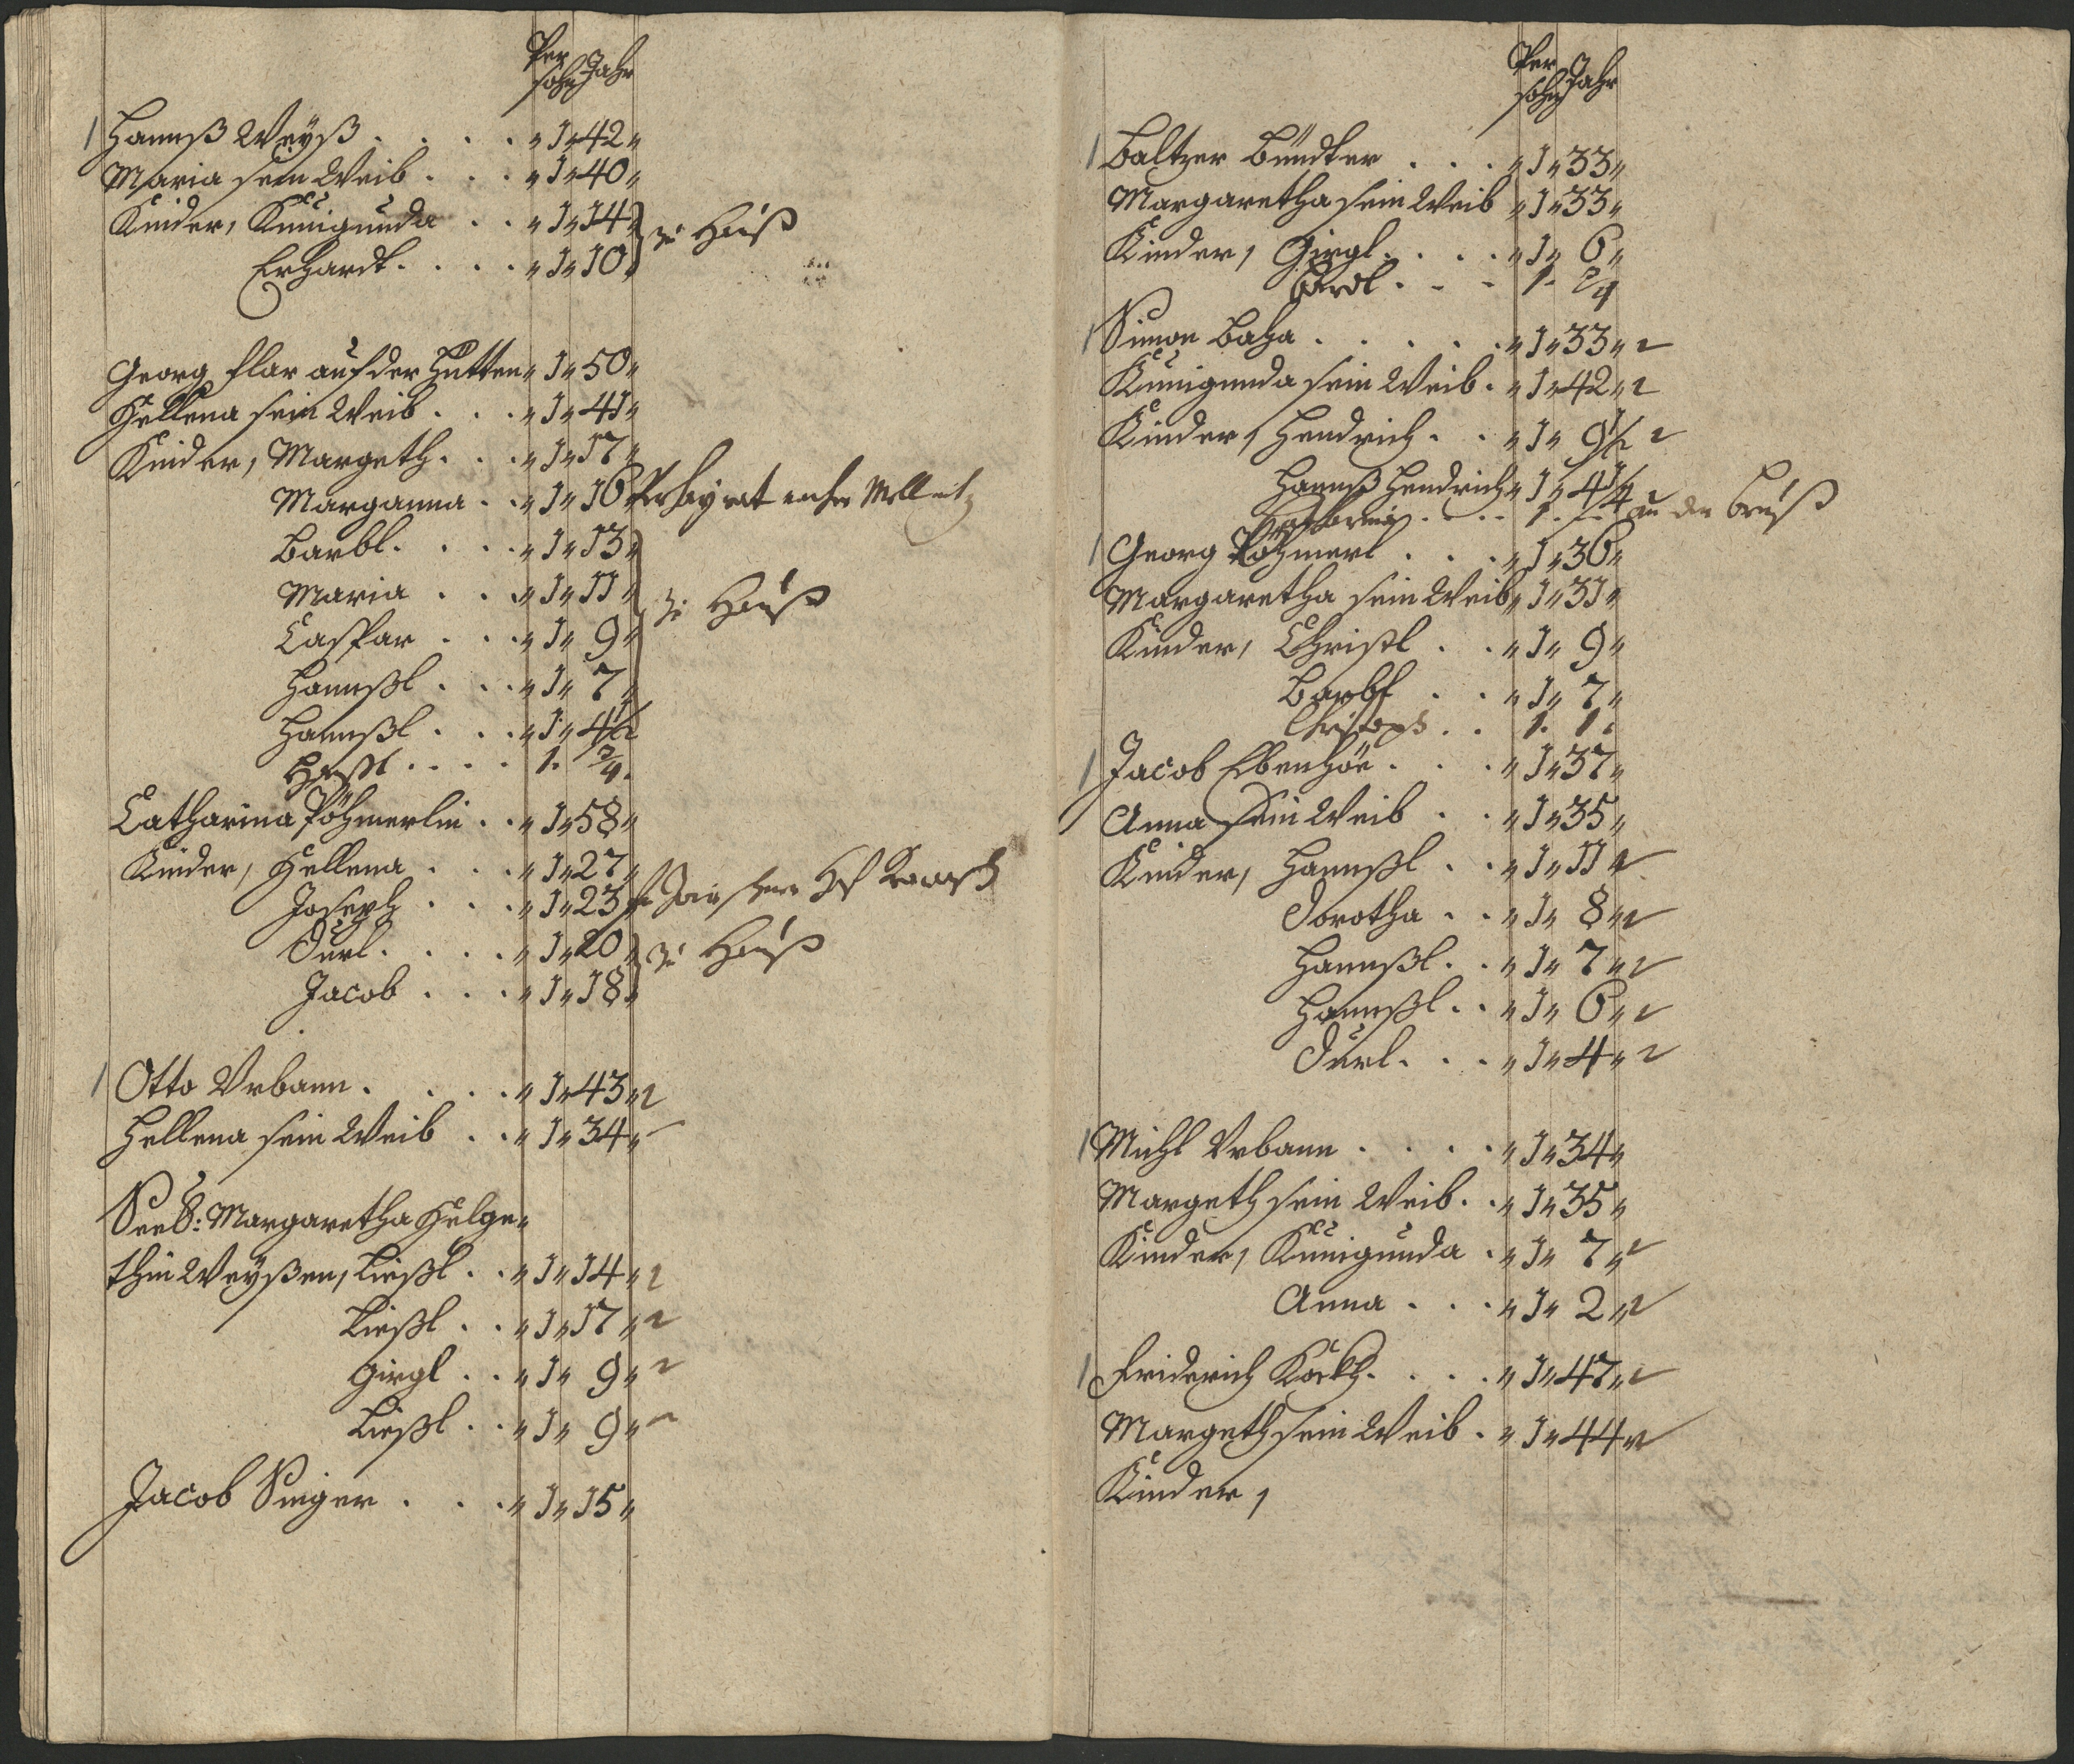 Per
sohn Jahr
1 Hannß Weyß . . . . „ 1 „ 42 „
Maria sein Weib . . . „ 1 „ 40 „
Kinder, Kunigunda . . „ 1 „ 14 „ zu Hauß
Erhardt . . . . „ 1 „ 10 „
Georg flar auf der Hutten „ 1 „ 50 „
Hellena sein Weib . . . „ 1 „ 41 „
Kinder, Margeth . . . „ 1 „ 17 „
Marganna . . „ 1 „ 16 Verheyrat
Barbl . . . . „ 1 „ 13 „
Maria . . . „ 1 „ 11 „ zu Hauß
Caspar . . . „ 1 „ 9 „
Hannßl . . . „ 1 „ 7 „
Hannßl . . . „ 1 „ 4 1/2
. . . . 1. 3/4.
Catharina Pöhmerlin . . „ 1 „ 58 „
Kinder, Hellena . . . „ 1 „ 27 „
Joseph . . . „ 1 „ 23
Durl . . . . „ 1 „ 20 „ zu Hauß
Jacob . . . „ 1 „ 18 „
1 Otto Vrbann . . . . „ 1 „ 43 „
Hellena sein Weib . . „ 1 „ 34 „
Seel: Margaretha Helge„
thin Weyßen, Ließl . . „ 1 „ 14 „
Ließl . . „ 1 „ 17 „
Girgl . . „ 1 „ 9 „
Ließl . . „ 1 „ 9 „
Jacob Singer . . . „ 1 „ 15 „
Per
sohn Jahr
1 Baltzer Bündter . . . „ 1 „ 33 „
Margaretha sein Weib „ 1 „ 33 „
Kinder, Girgl . . . . „ 1 „ 6 „
. . . 1. 3/4
1 Simon Baha . . . . . „ 1 „ 33 „
Kunigunda sein Weib . „ 1 „ 42 „
Kinder, Hendrich . . „ 1 „ 9 1/2
Hannß Hendrich „ 1 „ 4 1/4
. . . . 1. an der Brust
1 Georg Pöhmerl . . . „ 1 „ 36 „
Margaretha sein Weib „ 1 „ 31 „
Kinder, Christl . . „ 1 „ 9 „
Barbl . . „ 1 „ 7 „
Christoph . . 1. 1.
1 Jacob Ebenhöe . . . „ 1 „ 37 „
Anna sein Weib . . „ 1 „ 35 „
Kinder, Hannßl . . „ 1 „ 11 „
Dorotha . . „ 1 „ 8 „
Hannßl . . „ 1 „ 7 „
Hannßl . . „ 1 „ 6 „
Durl . . . „ 1 „ 4 „
1 Michl Vrbann . . . . „ 1 „ 34 „
Margeth sein Weib . . „ 1 „ 35 „
Kinder, Kunigunda . „ 1 „ 7 „
Anna . . . „ 1 „ 2 „
1 Friderich Köckh . . . . „ 1 „ 47 „
Margeth sein Weib . „ 1 „ 44 „
Kinder,